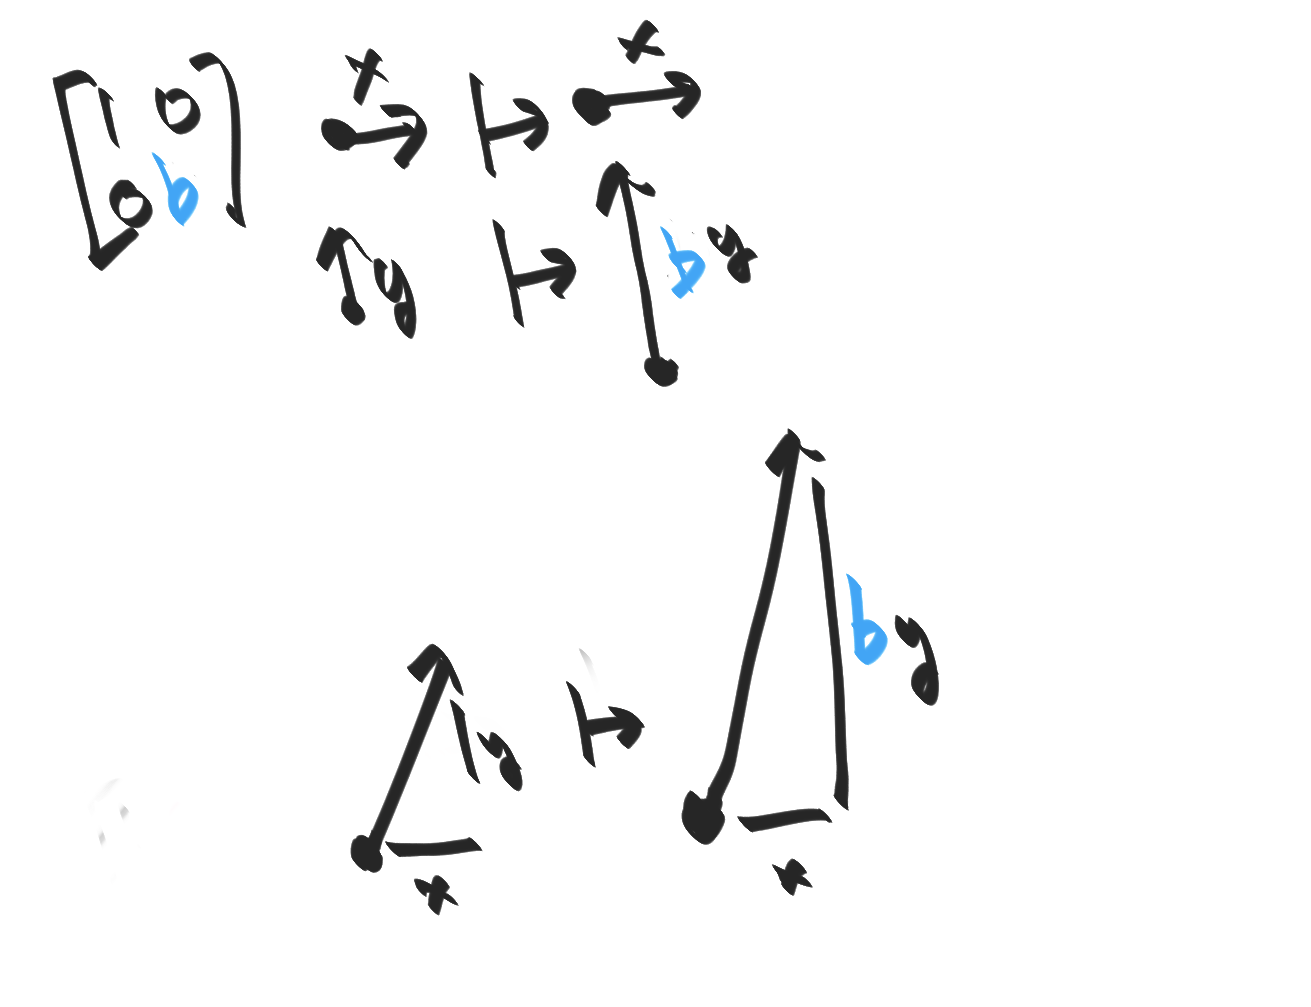 [1 0
0 b]
x ↦ x
y ↦ by
y ↦ by
x x